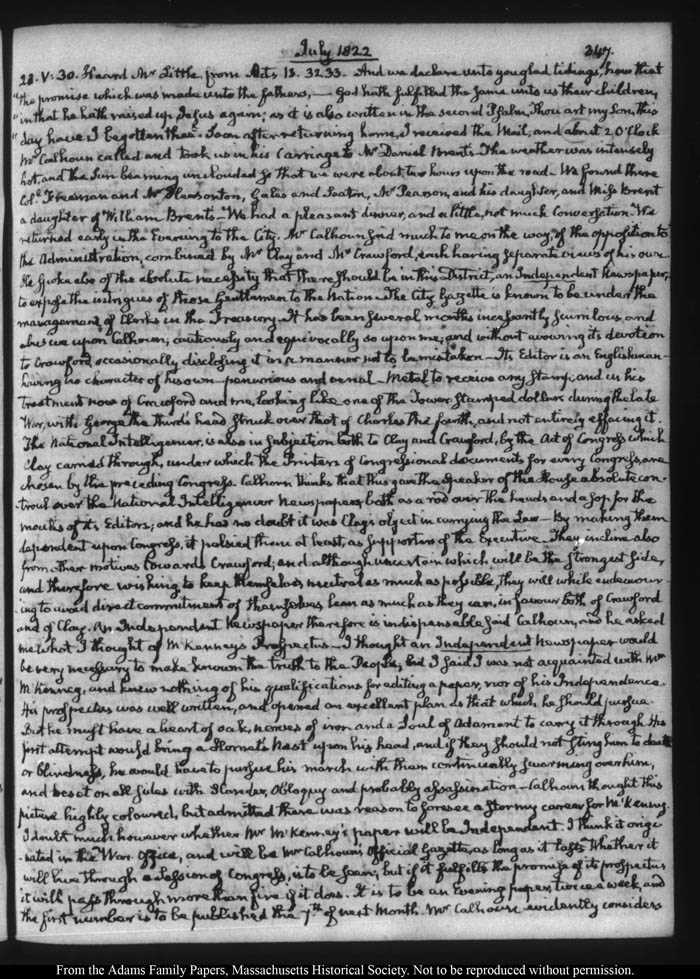 July 1822
347.
28. V:30. Heard Mr Little from Acts 13. 32.33. And we declare unto you glad tidings, how that
"the promise which was made unto the fathers,— God hath fulfilled the same unto us their children,
"in that he hath raised up Jesus again; as it is also written in the second Psalm, Thou art my Son, this
"day have I begotten thee. Soon after returning home, I received the Mail, and about 2 O'Clock
Mr Calhoun called and took us in his Carriage to Mr Daniel Brents. The weather was intensely
hot, and the Sun beaming unclouded so that we were about two hours upon the road. We found there
Coll. Freeman and Mr Pleasonton, Gales and Seaton, Mr Pearson, and his daughter, and Miss Brent
a daughter of William Brents— We had a pleasant dinner, and a little, not much Conversation. We
returned early in the Evening to the City. Mr Calhoun said much to me on the way, of the opposition to
the Administration, combined by Mr Clay and Mr Crawford, each having separate views of his own.
He spoke also of the absolute necessity that there should be in this District, an Independent Newspaper,
to expose the intrigues of those Gentlemen to the Nation. The City Gazette is known to be under the
management of Clerks in the Treasury. It has been several months incessantly scurrilous and
abusive upon Calhoun; cautiously and equivocally so upon me; and without avowing its devotion
to Crawford, occasionally disclosing it in a manner not to be mistaken— Its Editor is an Englishman—
having no character of his own— penurious and venal— Metal to receive any Stamp; and in his
treatment now of Crawford and me, looking like one of the Tower stamped dollars during the late
War, with George the third's head struck over that of Charles the fourth, and not entirely effacing it.
The National Intelligencer, is also in subjection both to Clay and Crawford, by the Act of Congress which
Clay carried through, under which the Printers of Congressional documents for every Congress, are
chosen by the preceding Congress. Calhoun thinks that this gave the Speaker of the House absolute con-
troul over the National Intelligencer Newspaper, both as a rod over the heads and a sop for the
mouths of its Editors; and he has no doubt it was Clay's object in carrying the Law— By making them
dependent upon Congress, it palsied them at least, as supporters of the Executive. They incline also
from other motives towards Crawford; and although uncertain which will be the strongest side,
and therefore wishing to keep themselves neutral as much as possible, they will while endeavour-
ing to avoid direct commitment of themselves, lean as much as they can, in favour both of Crawford
and of Clay. An Independent Newspaper therefore is indispensable said Calhoun, and he asked
me what I thought of McKenney's Prospectus— I thought an Independent Newspaper would
be very necessary to make known the truth to the People; but I said I was not acquainted with Mr
McKenney, and knew nothing of his qualifications for editing a paper, nor of his Independence.
His prospectus was well written, and opened an excellent plan as that which he should pursue.
But he must have a heart of oak, nerves of iron and a Soul of Adamant to carry it through. His
first attempt would bring a Hornet's Nest upon his head, and if they should not sting him to death
or blindness, he would have to pursue his march with them continually swarming over him,
and beset on all sides with Slander, Obloquy and probably assassination— Calhoun thought this
picture highly coloured, but admitted there was reason to foresee a stormy career for McKenney.
I doubt much however whether Mr McKenney's paper will be Independent. I think it origi-
nated in the War Office, and will be Mr Calhoun's official Gazette, as long as it lasts. Whether it
will live through a Session of Congress, is to be seen; but if it fulfills the promise of its prospectus
it will pass through more than five if it does. It is to be an Evening paper, twice a week, and
the first number is to be published the 7th of next Month. Mr Calhoun evidently considers
From the Adams Family Papers, Massachusetts Historical Society. Not to be reproduced without permission.